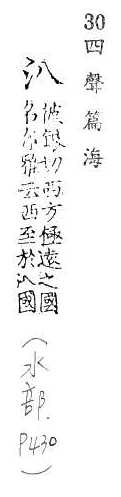 30 四聲篇海
汃
彼銀切西方極遠之國
名尔雅云西至於汃國
(水部. P430)